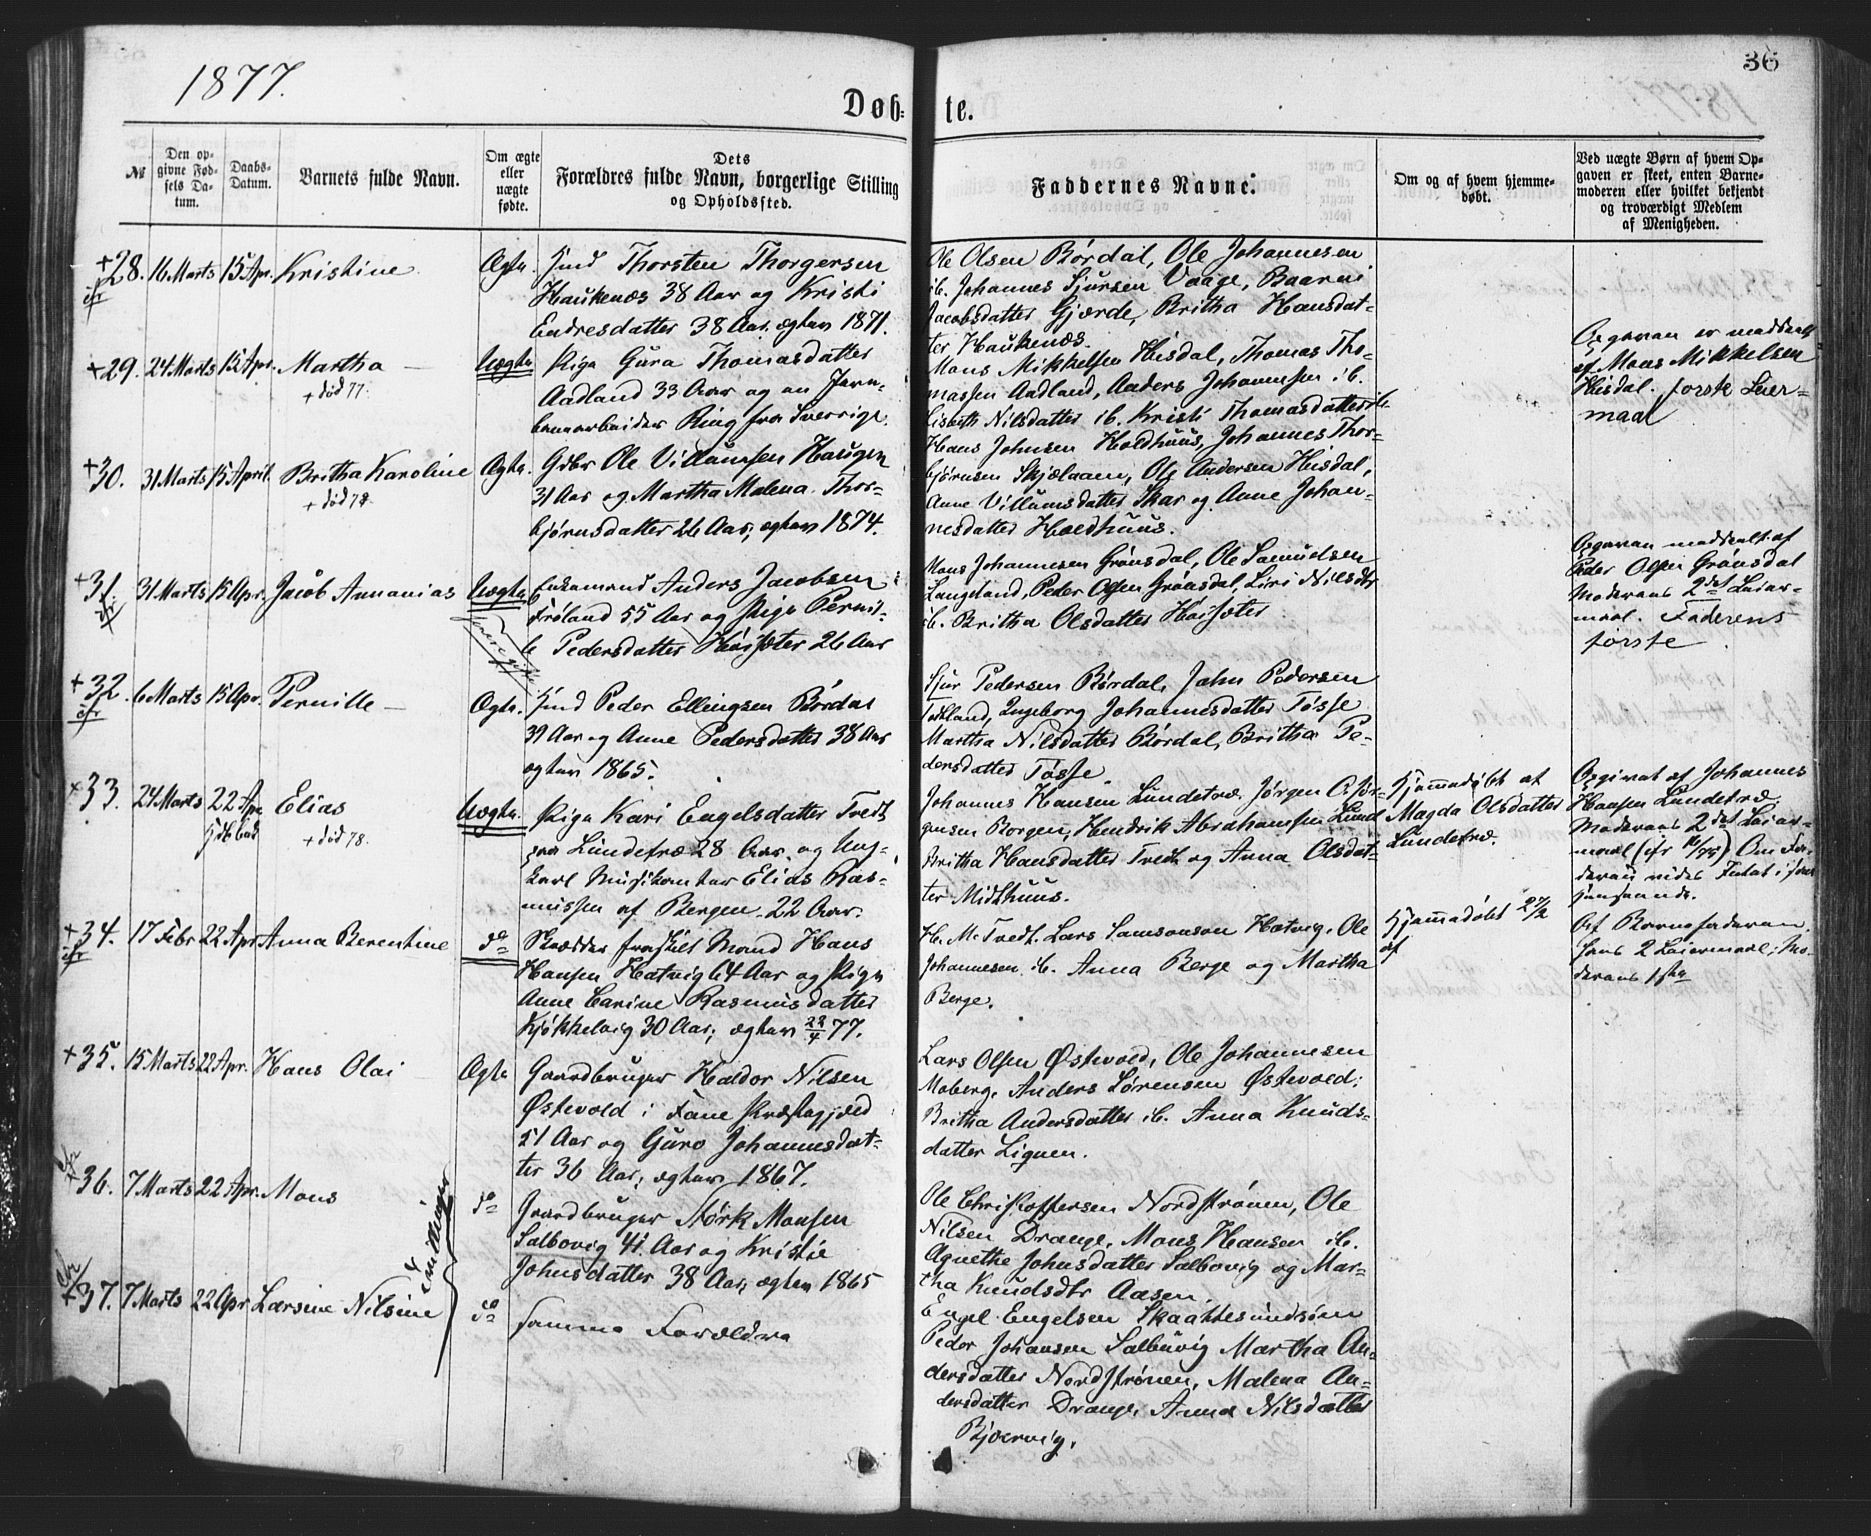 1877.
36
Døb-
te.
№
Den op-
givne Fød-
sels Da-
tum.
Daabs-
Datum.
Barnets fulde Navn.
Om ægte
eller
uægte
fødte.
Dets
Forældres fulde Navn, borgerlige Stilling
og Opholdssted.
Faddernes Navne.
Om og af hvem hjemme-
døbt.
Ved uægte Børn af hvem Op-
gaven er skeet, enten Barne-
moderen eller hvilket bekjendt
og troværdigt Medlem
af Menigheden.
+28. 16 Marts 15 Apr. Kristine Ægte.
Thorsten Thorgersen
Haukenæs 38 Aar og Kristi
Endresdatter 38 Aar, ægtev 1871.
Ole Olsen Børdal, Ole Johannesen
ib. Johannes Sjursen Vaage, Baarni
Jacobsdatter Gjærde, Britha Hansdat-
ter Haukenæs.
+29. 24 Marts 15 Apr. Martha
+ død 77.
Uægte
Pige Gura Thomasdatter
Aadland 33 Aar og en Jern-
banearbeider Ring fra Sverrige.
Mons Mikkelsen Hisdal, Thomas Tho-
massen Aadland, Anders Johannesen ib.
Lisbeth Nilsdatter ib. Kristi Thomasdatter ib.
Opgaven er meddeelt
af Mons Mikkelsen
Hisdal. første Leier-
maal
+30. 31 Marts 15 April. Britha Karoline
+ død 78.
Ægte.
Gdbr Ole Villumsen Haugen
31 Aar og Martha Malena Thor-
bjørnsdatter 26 Aar, ægtev 1874.
Hans Johnsen Holdhuus, Johannes Thor-
bjørnsen Skjelaaen, Ole Andersen Hisdal,
Anne Villumsdatter Skar og Anne Johan-
nesdatter Holdhuus.
+31. 31 Marts 15 Apr. Jacob Annanias Uægte
Enkemand Anders Jacobsen
Frøland 55 Aar og Pige Pernil-
le Pedersdatter Høisæter 26 Aar
Mons Johannesen Grønsdal, Ole Samuelsen
Langeland, Peder Olsen Grønsdal, Liri Nilsdtr
ib. Britha Olsdatter Høisæter
Opgaven meddeelt af
Peder Olsen Grønsdal
Moderens 2det Leier-
maal. Faderens
første
+32. 6 Marts 15 Apr. Pernille Ægte.
Peder Ellingsen Børdal
39 Aar og Anne Pedersdatter 38 Aar
ægtev 1865.
Sjur Pedersen Børdal, John Pedersen
Tokland, Ingeborg Johannesdatter Tøsse
Martha Nilsdatter Børdal, Britha Pe-
dersdatter Tøsse.
+33. 24 Marts 22 Apr. Elias
+ død 78.
Uægte.
Pige Kari Engelsdatter Tvedt
Lundetræ 28 Aar og Ung-
karl Musikanter Elias Ras-
mussen af Bergen 22 Aar.
Johannes Hansen Lundetræ, Jørgen
gensen Borgen, Hendrik Abrahamsen Lund
Britha Hansdatter Tvedt og Anna Olsdat-
ter Midthuus.
Hjemmedøbt af
Magda Olsdatter
Lundetræ.
Opgivet af Johannes
Hansen Lundetræ.
Moderens 2det Leier-
maal
+34. 17 Febr 22 Apr Anna Berentine do
Skrædder fraskilt Mand Hans
Hansen Hatvig 64 Aar og Pige
Anne Carine Rasmusdatter
Kjøkkelvig 30 Aar; ægtev 22/4 77.
H. M. Tvedt. Lars Samsonsen Hatvig, Ole
Johannesen ib. Anna Berge og Martha
Berge.
Hjemmedøbt 27/2
af
Af Barnefaderen.
hans 2 Leiermaal; Mo-
derens 1ste
+35. 15 Marts 22 Apr. Hans Olai Ægte
Gaardbruger Haldor Nilsen
Østevold i Fane Præstegjæld
51 Aar og Guro Johannesdat-
ter 36 Aar, ægtev 1867.
Lars Olsen Østevold, Ole Johannesen
Moberg, Anders Sørensen Østevold;
Britha Andersdatter ib. Anna Knuds-
datter Lignen.
+36. 7 Marts 22 Apr. Mons do
Tvillinger
Gaardbruger Størk Monsen
Salbovig 41 Aar og Kristie
Johnsdatter 38 Aar, ægtev 1865
Ole Christoffersen Nordstrønen, Ole
Nilsen Drange, Mons Hansen ib.
Agnethe Johnsdatter Salbovig og Mar-
tha Knudsdtr Aasen.
+37. 7 Marts 22 Apr Larsine Nilsine do
Samme Forældre
Engel Engelsen Skaattesundsøen
Peder Johansen Salbuvig Martha An-
dersdatter Nordstrønen, Malena An-
dersdatter Drange, Anna Nilsdatter
Bjørnvig.